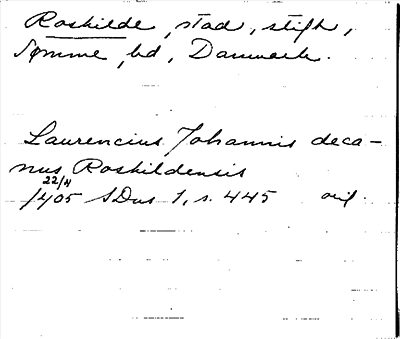 Roskilde, stad, stift,
Sømme hd, Danmark.
Laurencius Johannis deca-
nus Roskildensis
22/4
1405 SDns 1, s. 445 orig.